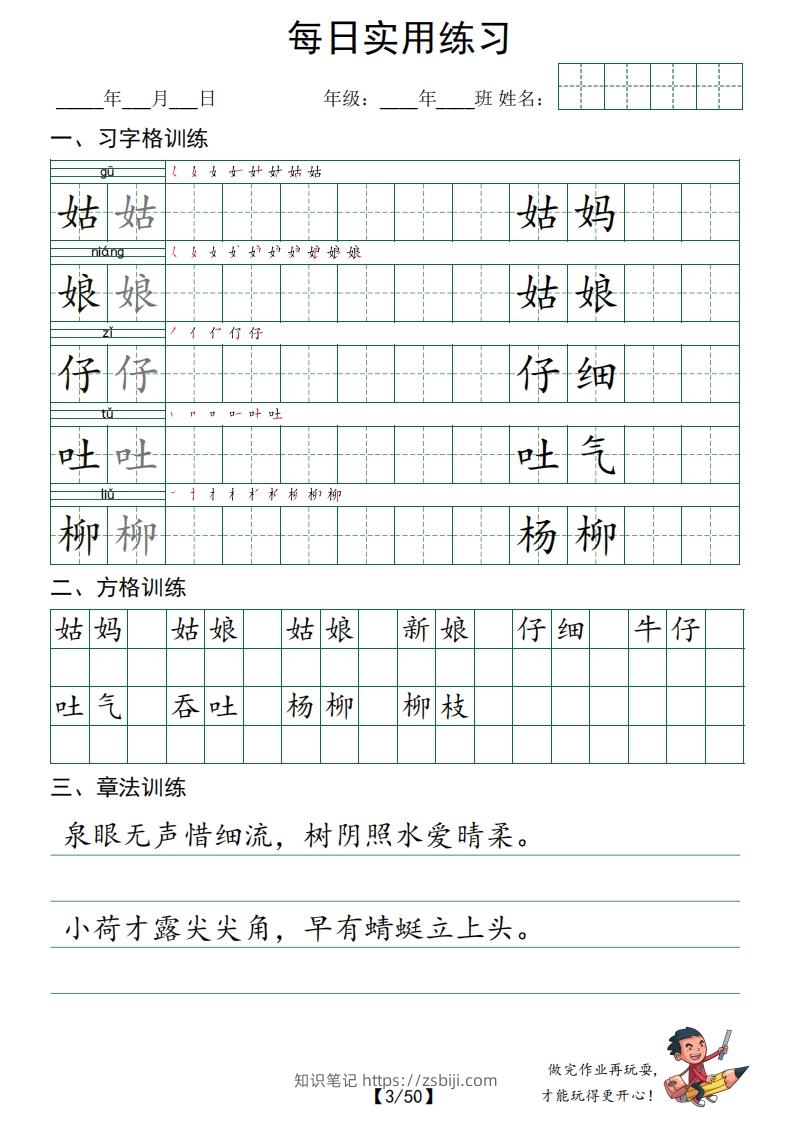 每日实用练习
_____年___月___日 年级：____年____班 姓名：
一、习字格训练
gū
姑 姑 姑 妈
niáng
娘 娘 姑 娘
zǐ
仔 仔 仔 细
tǔ
吐 吐 吐 气
liǔ
柳 柳 杨 柳
二、方格训练
姑妈 姑娘 姑娘 新娘 仔细 牛仔
吐气 吞吐 杨柳 柳枝
三、章法训练
泉眼无声惜细流，树阴照水爱晴柔。
小荷才露尖尖角，早有蜻蜓立上头。
做完作业再玩耍，
知识笔记 https://zsbiji.com
才能玩得更开心！
【3/50】